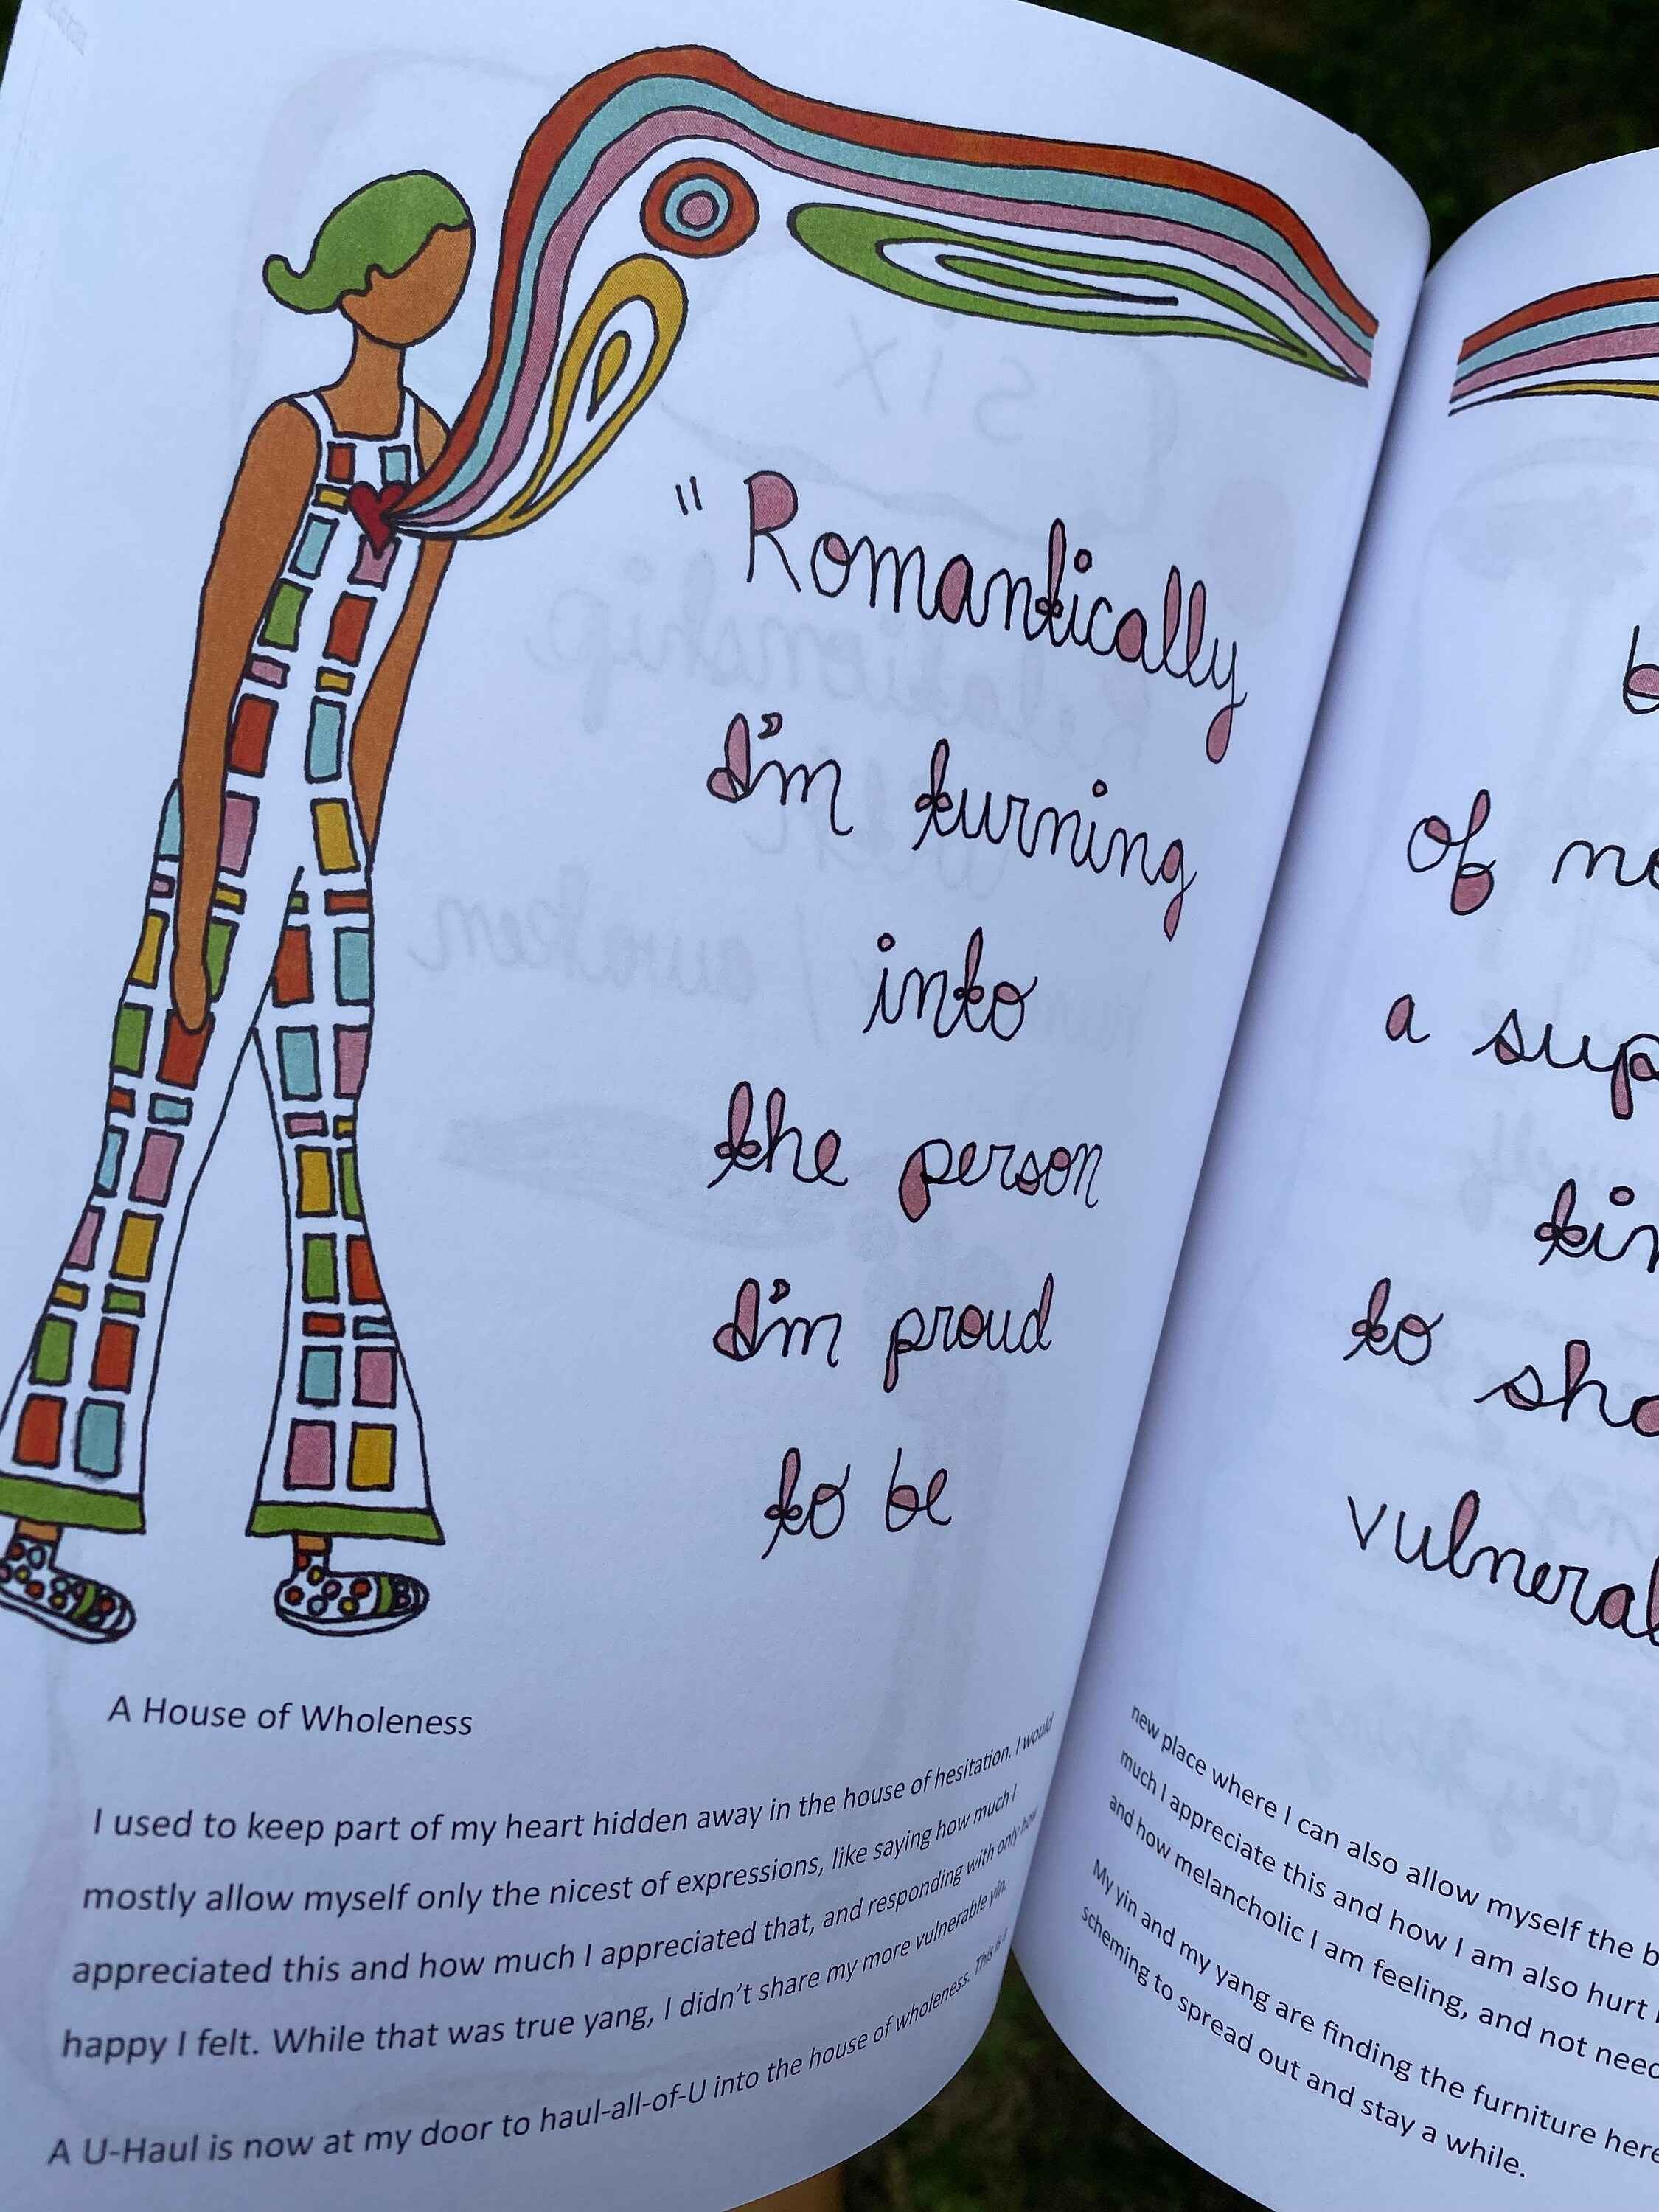 "Romantically
I'm turning
into
the person
I'm proud
to be
A House of Wholeness
I used to keep part of my heart hidden away in the house of hesitation. I would
mostly allow myself only the nicest of expressions, like saying how much I
appreciated this and how much I appreciated that, and responding with only how
happy I felt. While that was true yang, I didn't share my more vulnerable yin.
A U-Haul is now at my door to haul-all-of-U into the house of wholeness. This is
of
a
to
new place where I can also allow myself the
much I appreciate this and how I am also hurt
and how melancholic I am feeling, and not
My yin and my yang are finding the furniture here
scheming to spread out and stay a while.